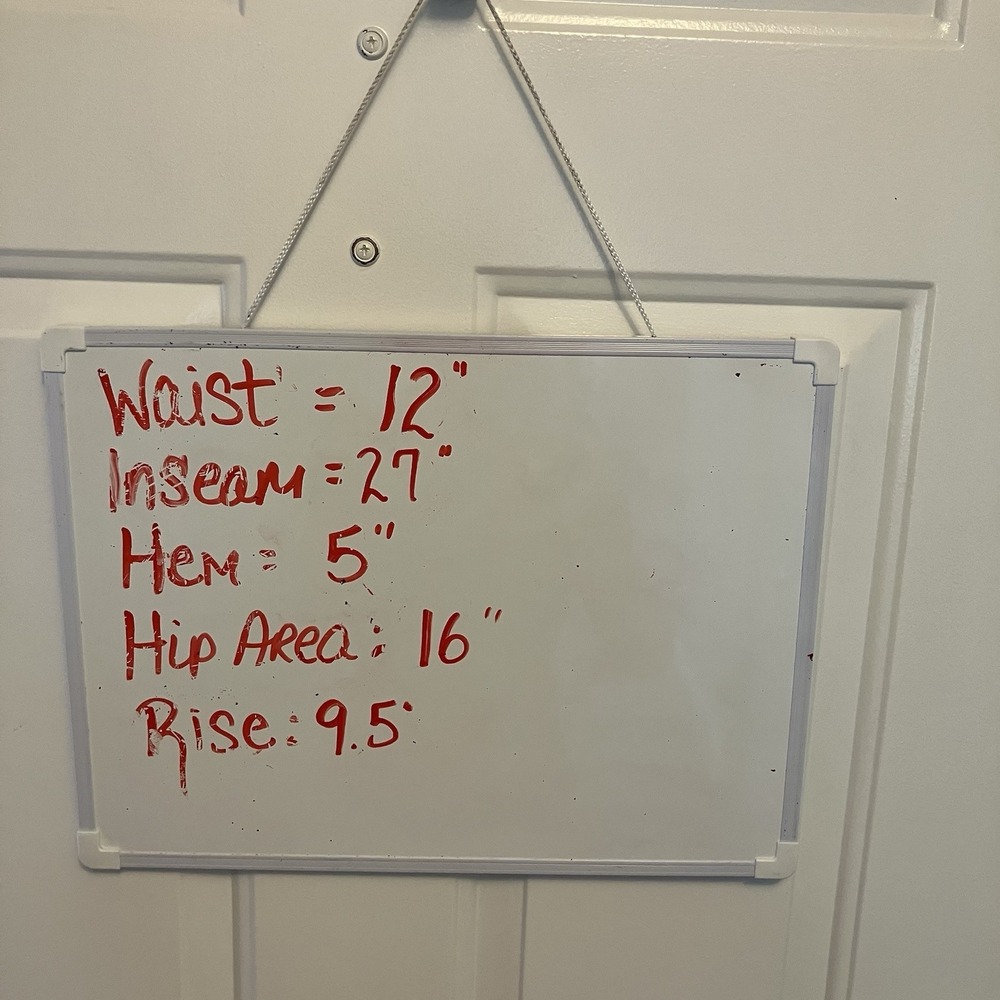 Waist = 12"
Inseam = 27"
Hem = 5"
Hip Area : 16"
Rise : 9.5"